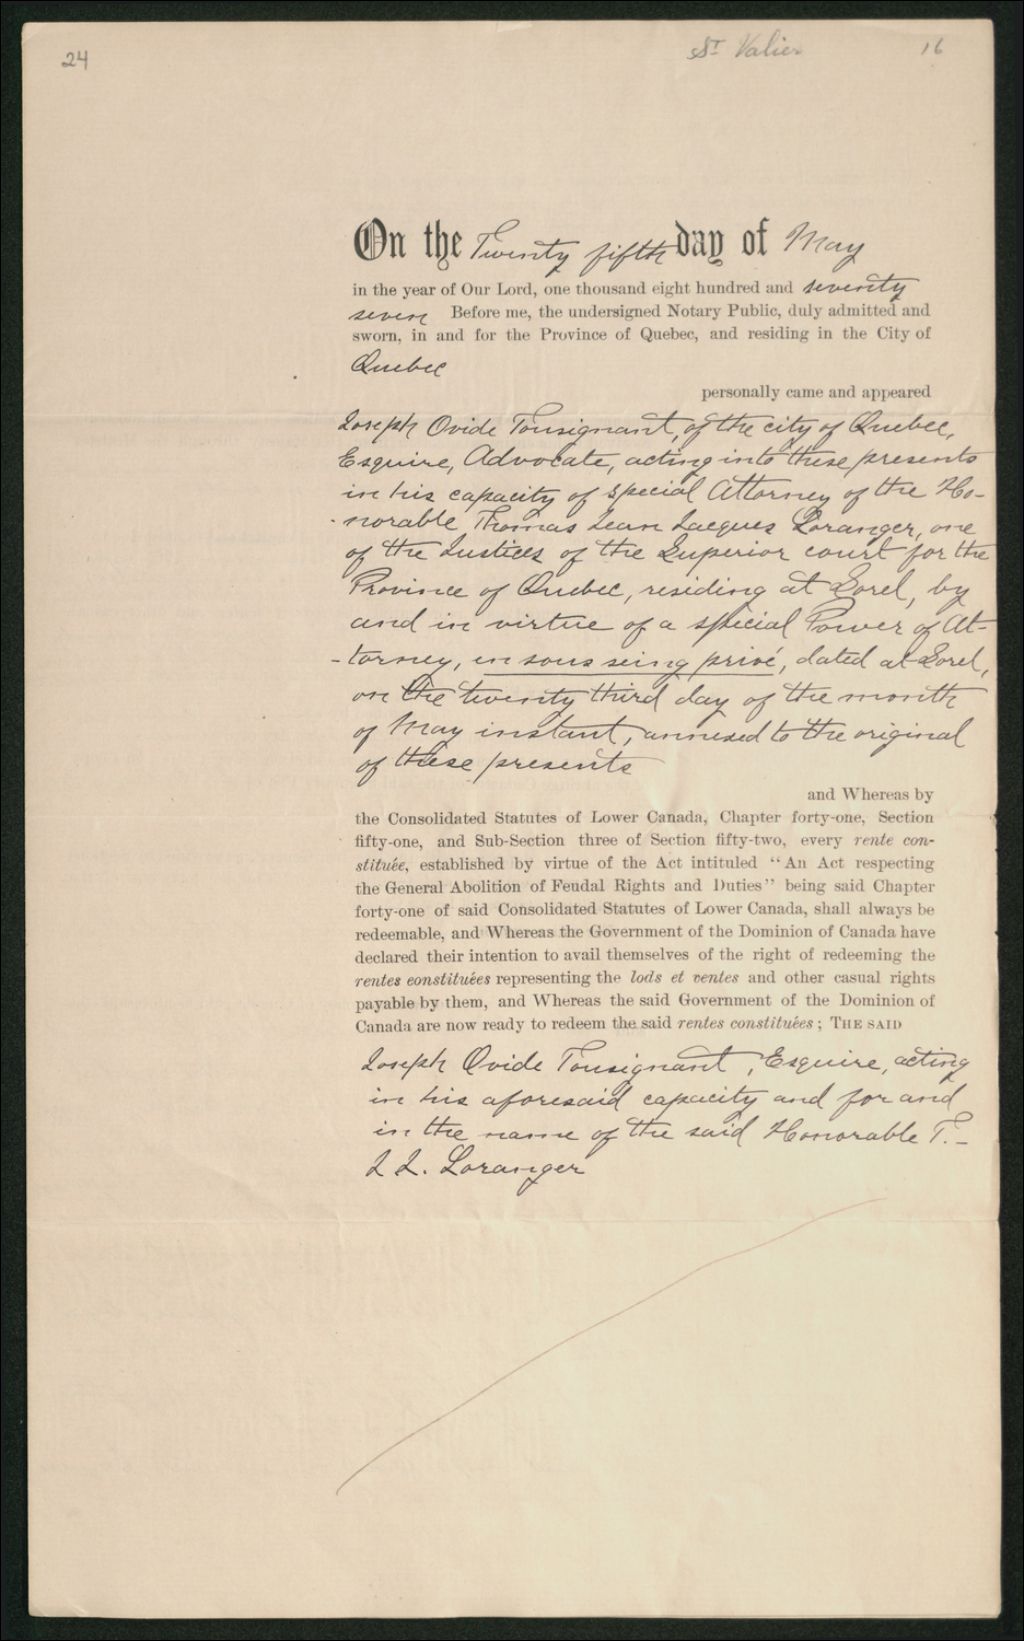 24
St Valier
16
On the Twenty fifth day of May
in the year of Our Lord, one thousand eight hundred and seventy
seven Before me, the undersigned Notary Public, duly admitted and
sworn, in and for the Province of Quebec, and residing in the City of
Quebec
personally came and appeared
Joseph Ovide Tousignant, of the city of Quebec,
Esquire, Advocate, acting into these presents
in his capacity of special Attorney of the Ho-
norable Thomas Jean Jacques Loranger, one
of the Justices of the Superior court for the
Province of Quebec, residing at Sorel, by
and in virtue of a special Power of At-
-torney, en sous seing privé, dated at Sorel,
on the twenty third day of the month
of May instant, annexed to the original
of these presents
and Whereas by
the Consolidated Statutes of Lower Canada, Chapter forty-one, Section
fifty-one, and Sub-Section three of Section fifty-two, every rente con-
stituée, established by virtue of the Act intituled “An Act respecting
the General Abolition of Feudal Rights and Duties” being said Chapter
forty-one of said Consolidated Statutes of Lower Canada, shall always be
redeemable, and Whereas the Government of the Dominion of Canada have
declared their intention to avail themselves of the right of redeeming the
rentes constituées representing the lods et ventes and other casual rights
payable by them, and Whereas the said Government of the Dominion of
Canada are now ready to redeem the said rentes constituées; THE SAID
Joseph Ovide Tousignant, Esquire, acting
in his aforesaid capacity and for and
in the name of the said Honorable T.-
J J. Loranger